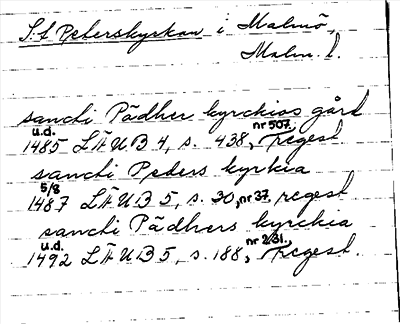 S:t Peterskyrkan i Malmö,
Malm. l.
sancti Pädher kyrckios gård
u.d. nr 507.
1485 LÄUB 4, s. 438, regest
sancti Peders kyrkia
5/8
1487 LÄUB 5, s. 30, nr 37. regest
sancti Pädhers kyrckia
u.d. nr 231.
1492 LÄUB 5, s. 188, regest.